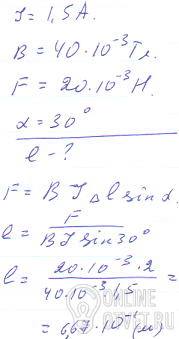 I = 1,5 А.
B = 40·10⁻³ Тл.
F = 20·10⁻³ Н.
α = 30°
l - ?
F = B I Δl sin α.
l = F / (B I sin 30°)
l = (20·10⁻³·2) / (40·10⁻³·1,5) =
= 6,67·10⁻¹ (м)
ONLINE
OTVET.RU